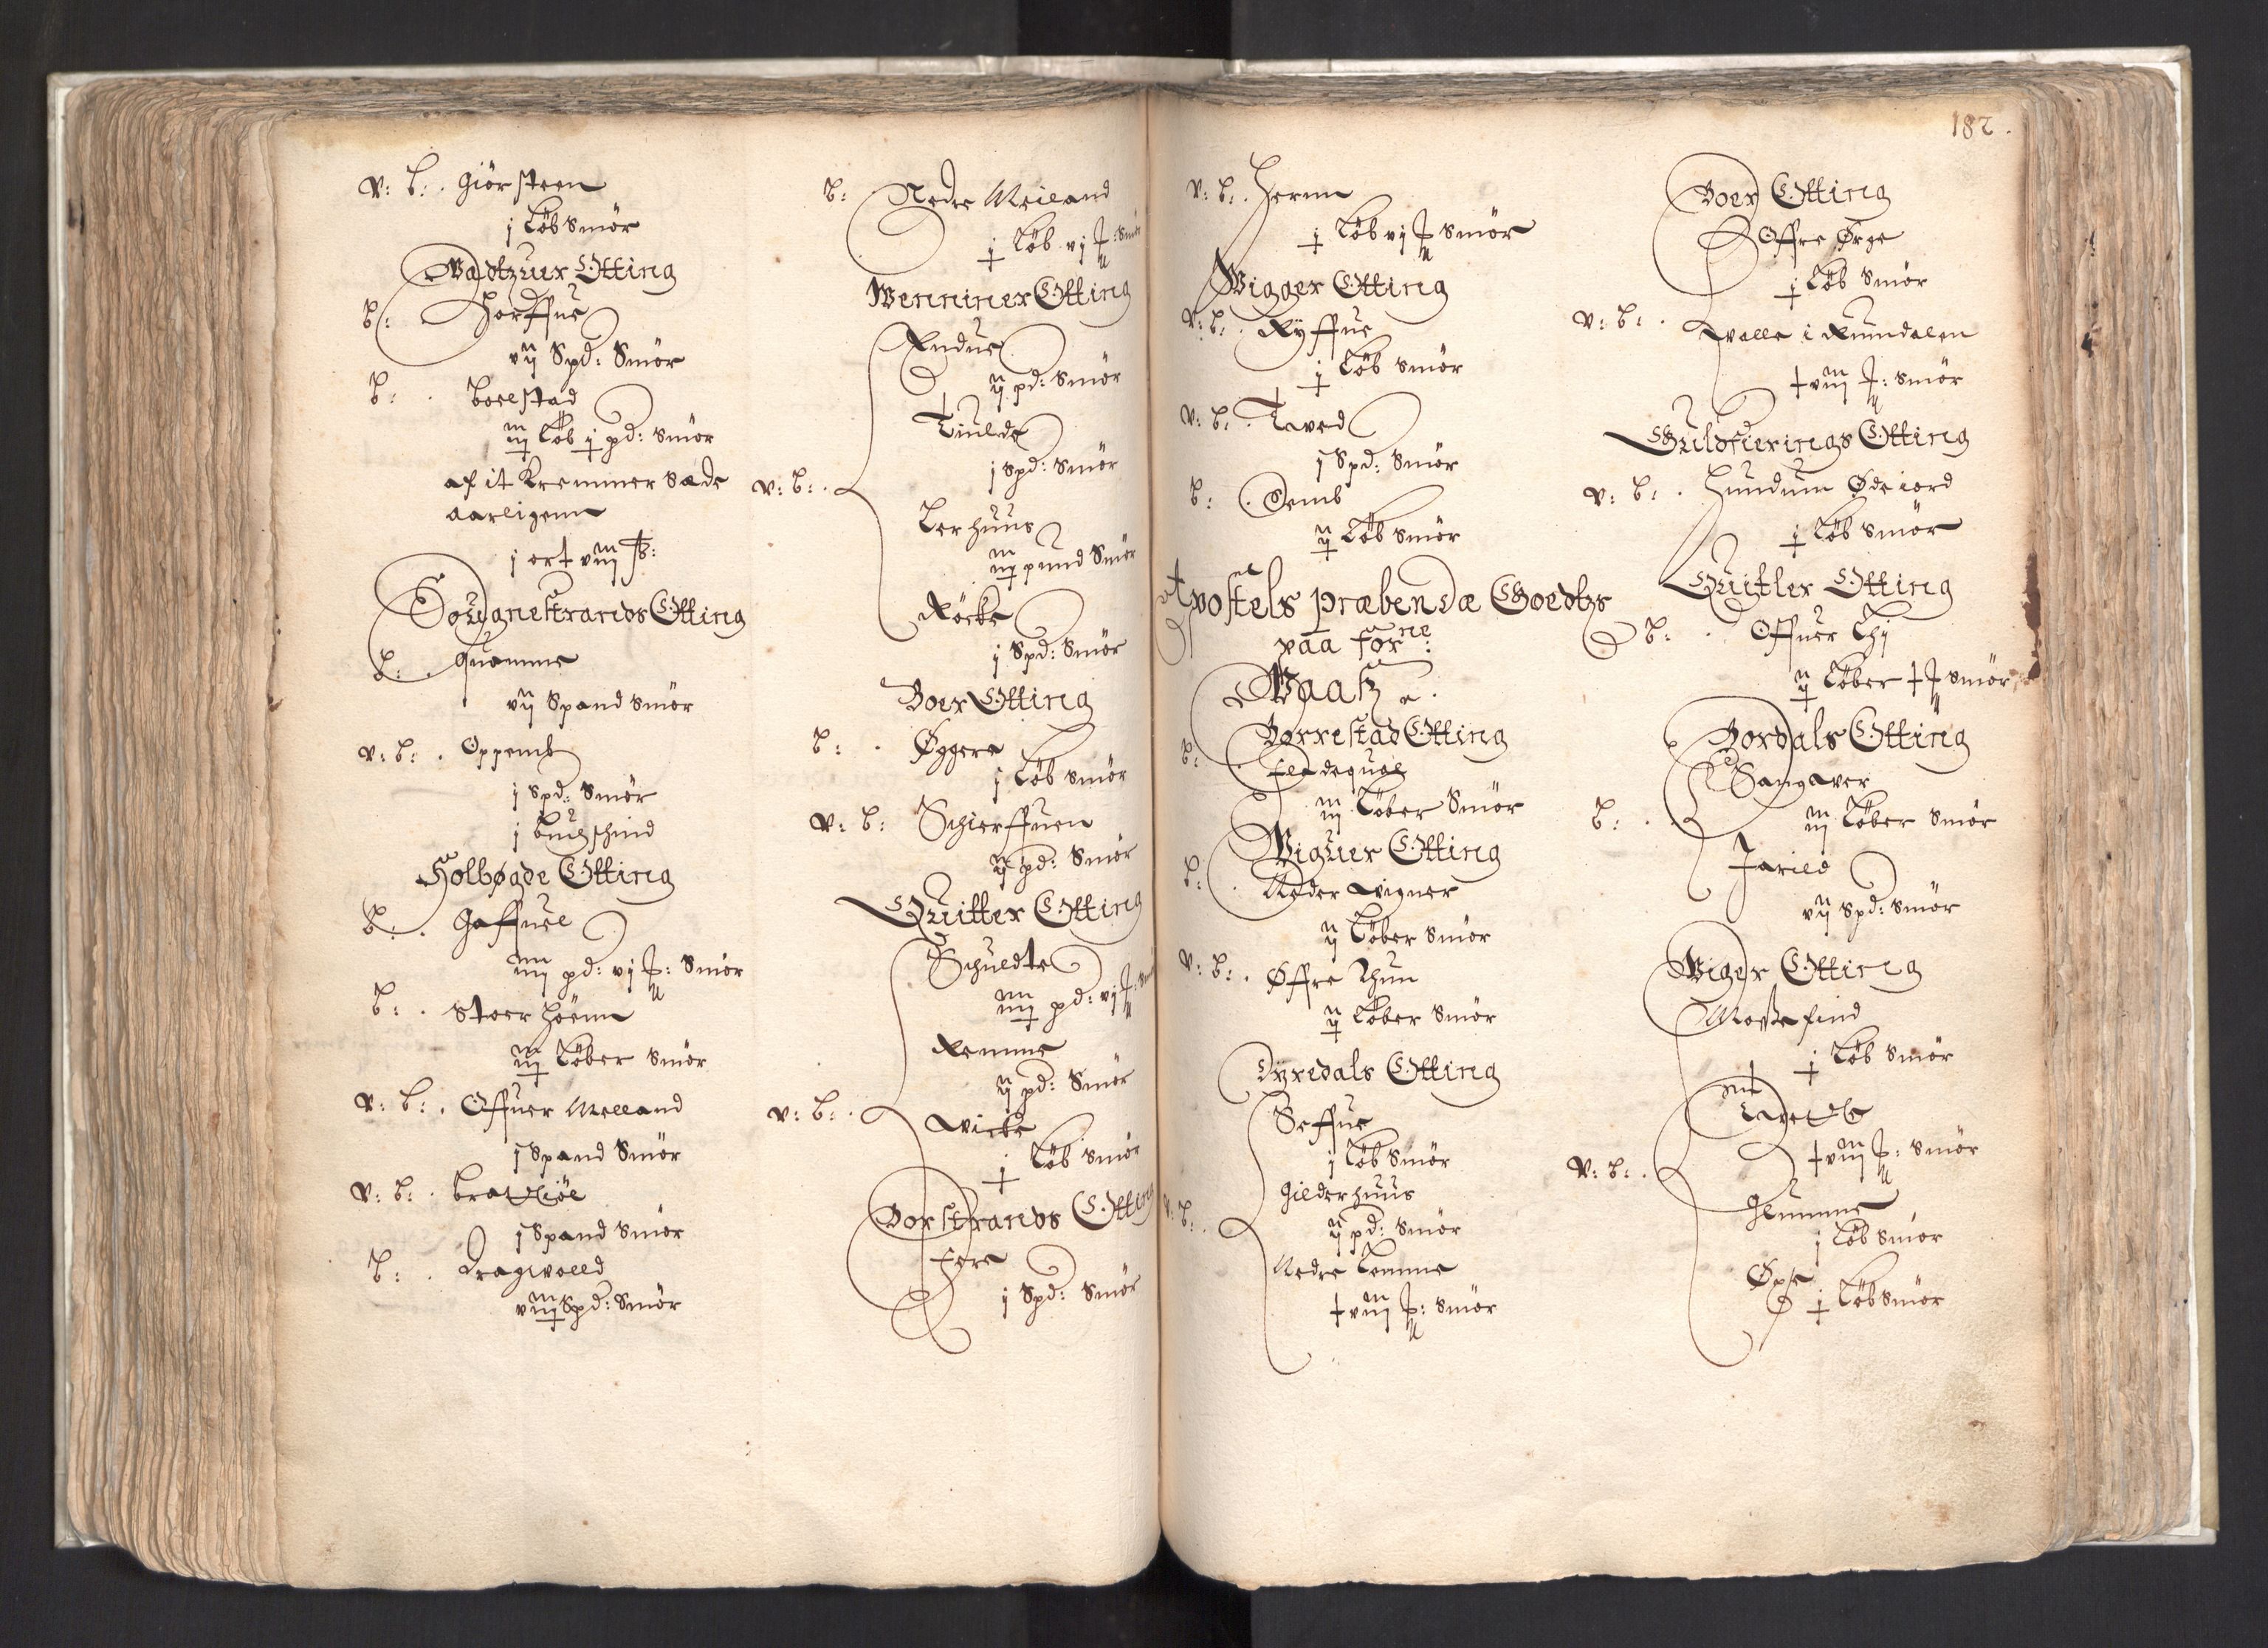 V: B: . Giörsteen
j Löb Smör
Vadtzuer Otting
B: . Horffue
vij Spd: Smör
B: . Boelstad
iij Löb j pd: Smör
af it Kremmer Sæde
aarligenn
j ort viij ß:
Sougnestrands Otting
B: . Quamme
vij Spand Smör
V: B: . Oppemb
j Spd: Smör
j buchschind
Holbøgde Otting
B: . Gaffuel
iiij pd: vj ℔: Smör
B: . Stoer Höenn
iij Löber Smör
V: B: . Offuer Melland
j Spand Smör
V: B: .
j Spand Smör
B: . Dragvolld
viij Spd: Smör
B: Nedre Meiland
j Löb vj ℔: Smör
Wenniner Otting
Endue
ij pd: Smör
Tiulde
j Spd: Smör
V: B: .
Lerhuus
iij pund Smör
Röcke
j Spd: Smör
Boer Otting
B: . Øggere
j Löb Smör
V: B: Schierffuen
ij pd: Smör
Quitler Otting
Schuldte
iiij pd: vj ℔: Smör
Remme
ij pd: Smör
V: B: .
Wicke
j Löb Smör
Vorstrands Otting
Egre
j Spd: Smör
182.
V: B: . Herrm
j Löb vj ℔ Smör
Wigger Otting
V: B: . Ryffue
j Löb Smör
V: B: . Tved
j Spd: Smör
B: . Semb
ij Löb Smör
Apostels præbendæ Goedtzs
paa forne:
Vaatz
Borrestad Otting
B: . Fladequal
iij Löber Smör
Viguer Otting
B: . Neder Vigner
ij Löber Smör
V: B: . Øffre Thun
ij Löber Smör
Dyredals Otting
Seffue
j Löb Smör
Gilderhuus
V: B: .
ij pd: Smör
Nedre Lemme
viij ℔: Smör
Boer Otting
Offre Ørge
j Löb Smör
V: B: . Qvalle i Rundalen
viij ℔: Smör
Guldfierings Otting
V: B: . Hundum Øde iord
j Löb Smör
Quitler Otting
B: . Offuer Thj
ij Löber ℔ Smör
Bordals Otting
Sangaver
B: .
iij Löber Smör
Jarild
vij Spd: Smör
Viger Otting
Mossefind
j Löb Smör
viij ℔: Smör
V: B: .
Glimme
j Löb Smör
Øpse
j Löb Smör